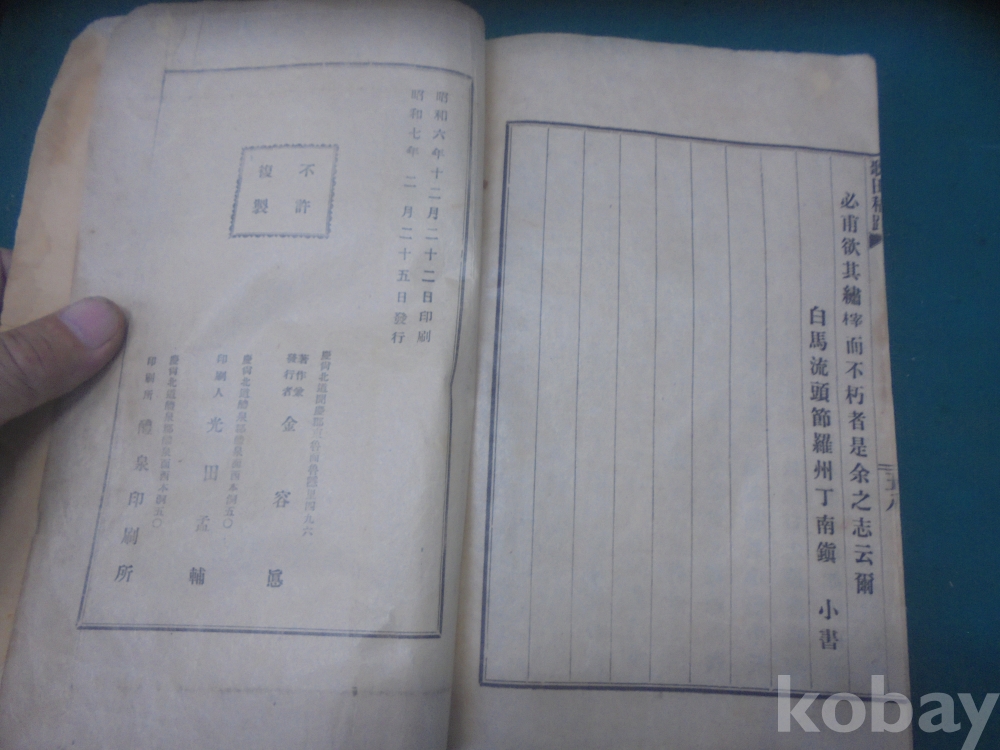 必甫欲其繡梓而不朽者是余之志云爾
白馬流頭節羅州丁南鎭 小書
昭和六年十二月二十二日印刷
昭和七年 二 月二十五日發行
不許
複製
著作兼
發行者 金容
印刷人 光田孟輔
慶尙北道醴泉郡醴泉面西本洞五〇
印刷所 醴泉印刷所
kobay